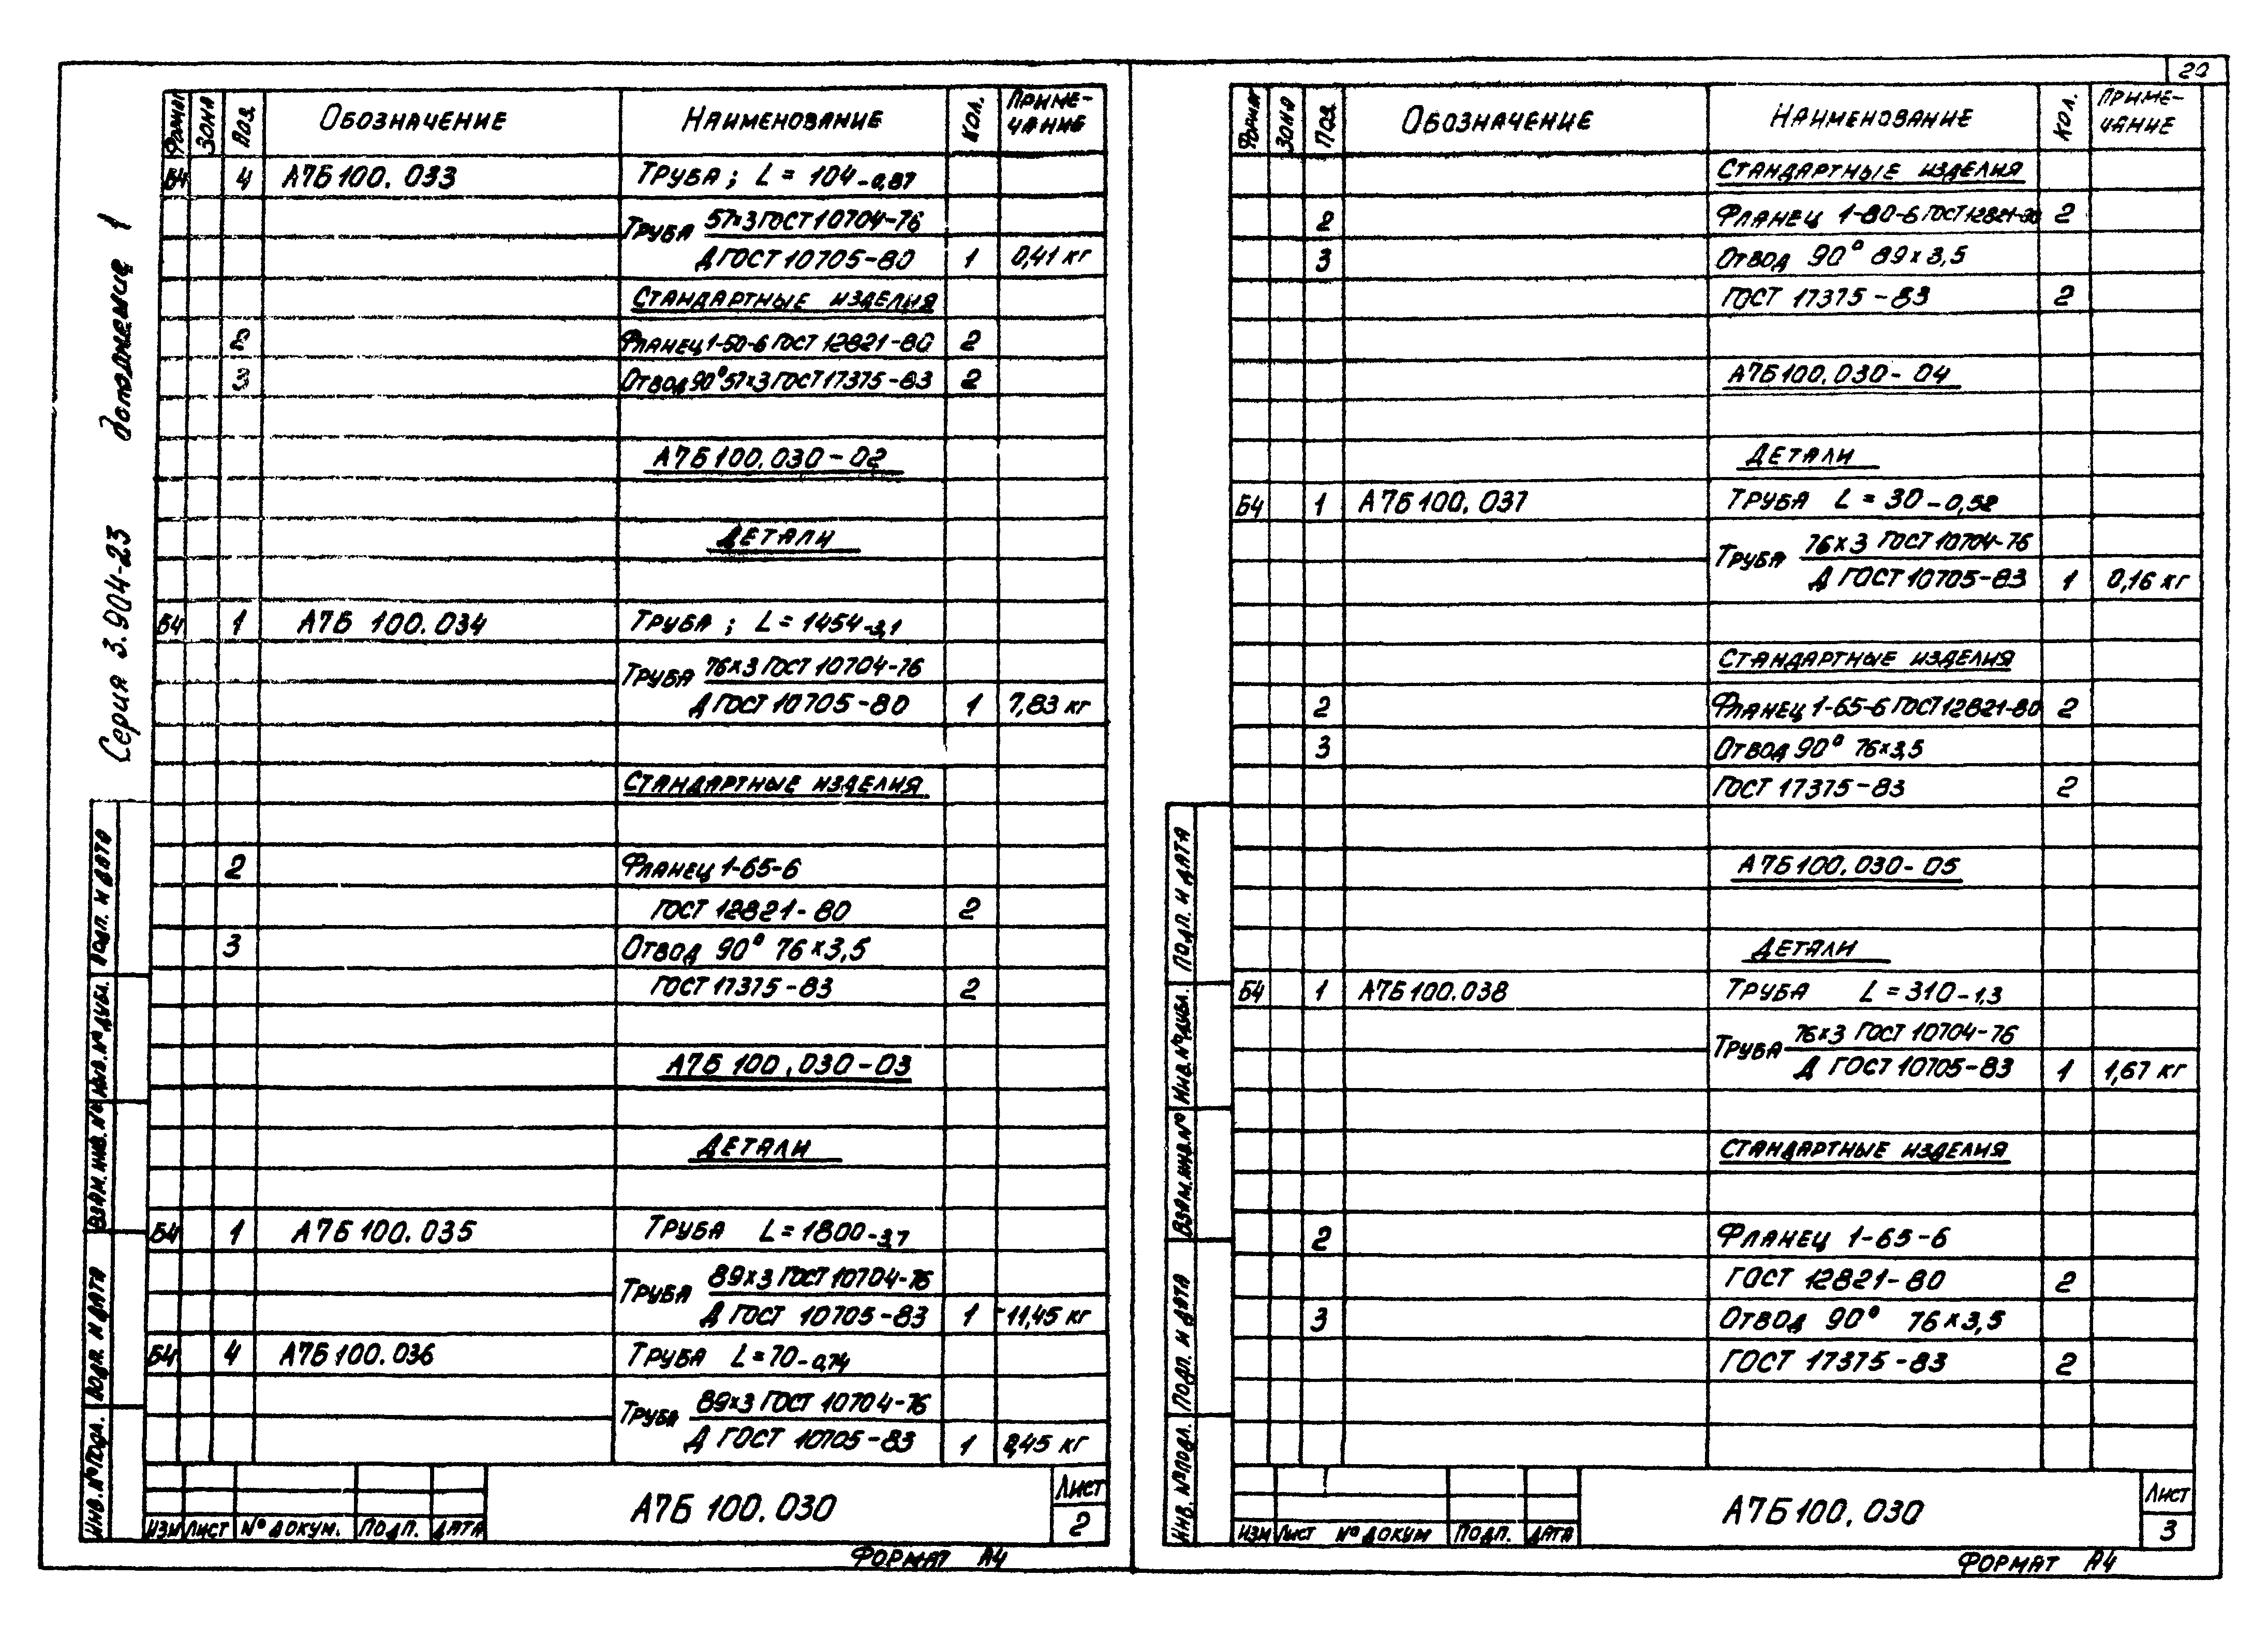 20
Серия 3.904-23 дополнение 1
Формат Зона Поз. Обозначение Наименование Кол. Приме-
чание
Б4 4 А7Б100.033 Труба; L = 104-0,87
Труба 57х3 ГОСТ 10704-76
Д ГОСТ 10705-80 1 0,41 кг
Стандартные изделия
2 Фланец 1-50-6 ГОСТ 12821-80 2
3 Отвод 90° 57х3 ГОСТ 17375-83 2
А7Б100.030-02
Детали
Б4 1 А7Б 100.034 Труба; L = 1454-3,1
Труба 76х3 ГОСТ 10704-76
Д ГОСТ 10705-80 1 7,83 кг
Стандартные изделия
2 Фланец 1-65-6
ГОСТ 12821-80 2
3 Отвод 90° 76х3,5
ГОСТ 17375-83 2
А7Б 100.030-03
Детали
Б4 1 А7Б100.035 Труба L = 1800-3,7
Труба 89х3 ГОСТ 10704-76
Д ГОСТ 10705-83 1 11,45 кг
Б4 4 А7Б100.036 Труба L = 70-0,74
Труба 89х3 ГОСТ 10704-76
Д ГОСТ 10705-83 1 0,45 кг
Инв. № подл. Подп. и дата Взам. инв. № Инв. № дубл. Подп. и дата
Изм Лист № докум. Подп. Дата
А7Б 100.030
Лист
2
Формат А4
Формат Зона Поз. Обозначение Наименование Кол. Приме-
чание
Стандартные изделия
2 Фланец 1-80-6 ГОСТ 12821-80 2
3 Отвод 90° 89х3,5
ГОСТ 17375-83 2
А7Б100.030-04
Детали
Б4 1 А7Б100.037 Труба L = 30-0,52
Труба 76х3 ГОСТ 10704-76
Д ГОСТ 10705-83 1 0,16 кг
Стандартные изделия
2 Фланец 1-65-6 ГОСТ 12821-80 2
3 Отвод 90° 76х3,5
ГОСТ 17375-83 2
А7Б100.030-05
Детали
Б4 1 А7Б100.038 Труба L = 310-1,3
Труба 76х3 ГОСТ 10704-76
Д ГОСТ 10705-83 1 1,67 кг
Стандартные изделия
2 Фланец 1-65-6
ГОСТ 12821-80 2
3 Отвод 90° 76х3,5
ГОСТ 17375-83 2
Инв. № подл. Подп. и дата Взам. инв. № Инв. № дубл. Подп. и дата
Изм Лист № докум Подп. Дата
А7Б100.030
Лист
3
Формат А4